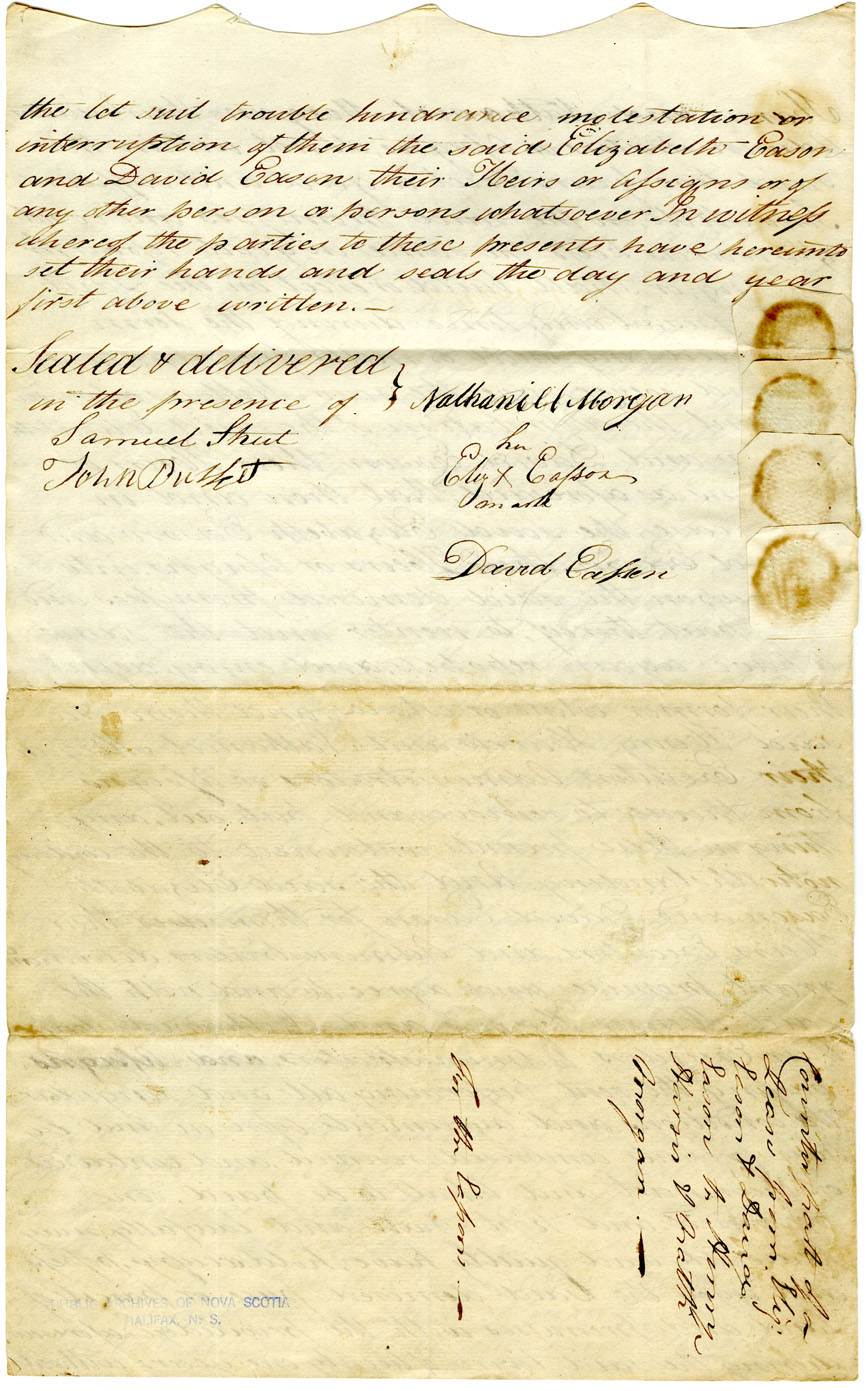 the let suit trouble hindrance molestation or
interruption of them the said Elizabeth Eason
and David Eason their Heirs or Assigns or of
any other person or persons whatsoever In witness
whereof the parties to these presents have hereunto
set their hands and seals the day and year
first above written.—
Sealed & delivered
in the presence of
Samuel Shut
John
Nathaniel Morgan
her
Eliz X Easson
mark
David Easson
Counter part of a
Lease from Eliz:
Eason & David
Eason to Henry
Harris &
Morgan.—
For the Eassons.—
PUBLIC ARCHIVES OF NOVA SCOTIA
HALIFAX, N. S.